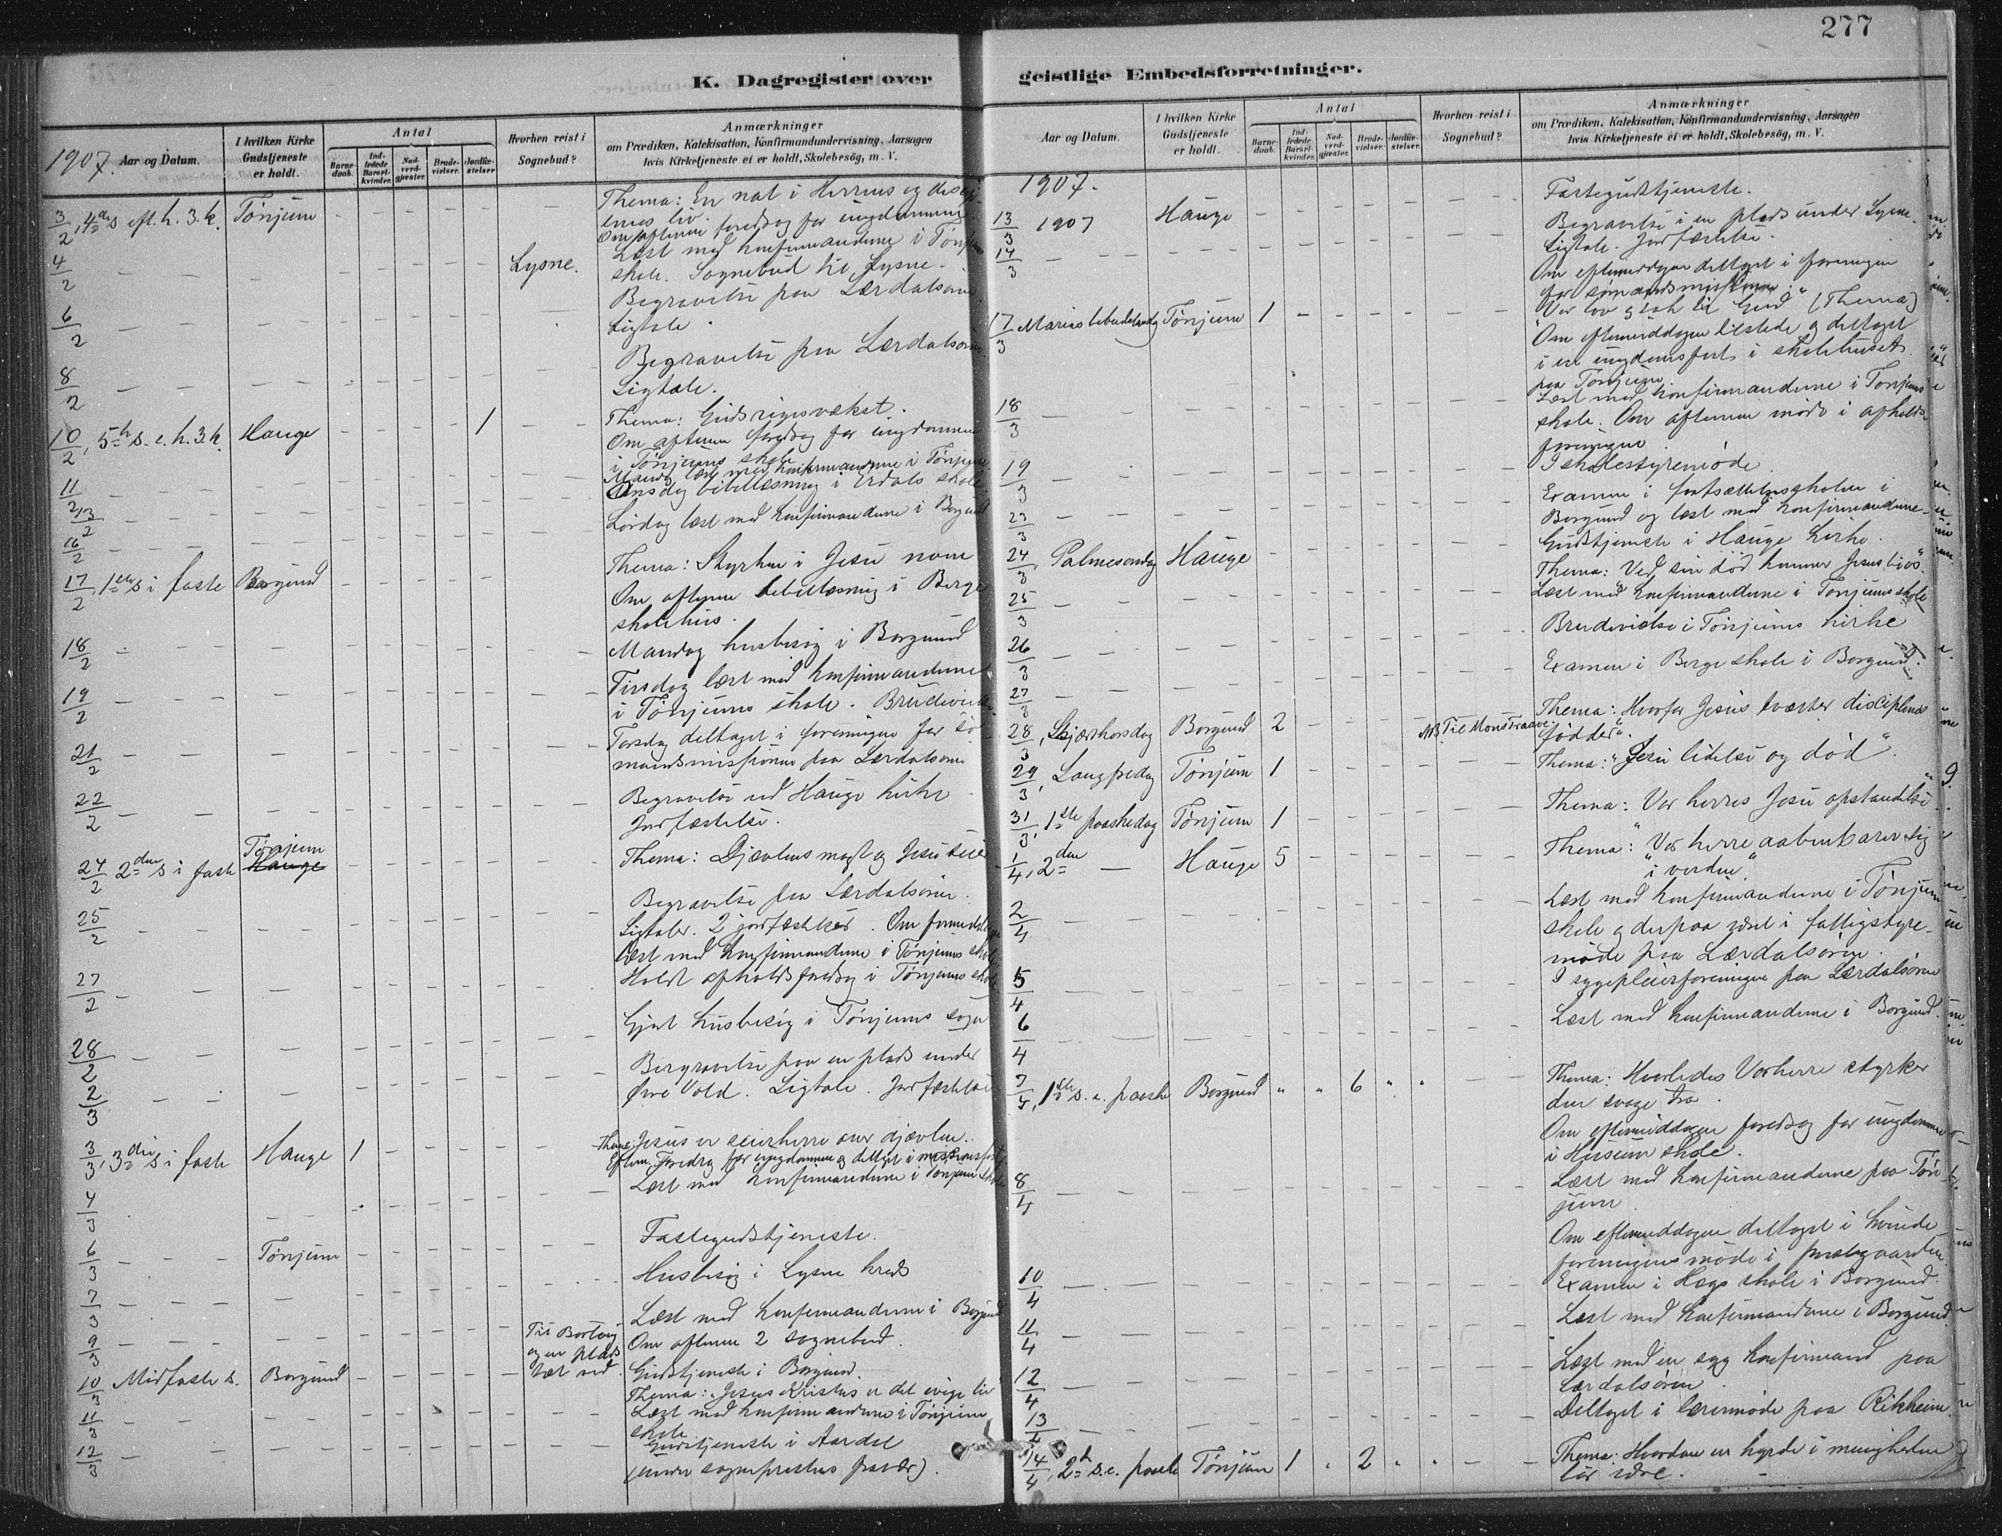 277
K. Dagregister over
1907. Aar og Datum.
I hvilken Kirke Gudstjeneste er holdt.
Antal
Barnedaab.
Indledede Barselkvinder.
Nadverdgjæster.
Brudevielser.
Jordfæstelser
Hvorhen reist i Sognebud?
Anmærkninger
om Prædiken, Katekisation, Konfirmandundervisning, Aarsagen
hvis Kirketjeneste ei er holdt, Skolebesøg, m. V.
3/2, 4de s eft. h. 3. k. Tønjum Thema: En nat i Herrens og discip-
lenes liv.
Om aftenen foredrag for ungdommen
4/2 Lysne. Læst med konfirmanderne i Tønjums
skole. Sognebud til Lysne.
6/2 Begravelse paa Lærdalsøren.
Ligtale.
8/2 Begravelse paa Lærdalsøren.
Ligtale.
10/2, 5te s. e. h. 3. k. Hauge 1 Thema: Gudsrigesvækst.
Om aftenen foredrag for ungdommen
i Tønjums skole
11/2 Mandag læst med konfirmanderne i Tønjum.
13/2 Onsdag bibellæsning i Erdals skole
16/2 Lørdag læst med konfirmanderne i Borgund
17/2, 1ste s i faste Borgund Thema: Styrken i Jesu navn
Om aftenen bibellæsning i Berge
skolehus.
18/2 Mandag husbesøg i Borgund
19/2 Tirsdag læst med konfirmanderne
i Tønjums skole. Brudevielse
21/2 Torsdag deltaget i foreningen for sø-
mandsmissionen paa Lærdalsøren
22/2 Begravelse ved Hauge kirke
Jordfæstelse.
24/2 2den s i faste Tønjum Hauge Thema: Djævlens magt og Jesu seier
25/2 Begravelse paa Lærdalsøren.
Ligtaler. 2 jordfæstelser. Om formiddagen
læst med konfirmanderne i Tønjums skole
27/2 Holdt afholdsforedrag i Tønjums skole
28/2 Gjort husbesøg i Tønjums sogn
2/3 Begravelse paa en plads under
Øvre Vold. Ligtale. Jordfæstelse
3/3, 3die s i faste Hauge 1 Thema: Jesus er seierherre over djævlen.
Efterm. Foredrag for ungdommen og deltaget i missionsfest
4/3 Læst med konfirmanderne i Tønjum skole
6/3 Tønjum Fastegudstjeneste.
7/3 Husbesøg i Lysne kreds
9/3 Til og en plads tæt ved. Læst med konfirmanderne i Borgund
Om aftenen 2 sognebud.
10/3 Midfaste s. Borgund Gudstjeneste i Borgund.
Thema: Jesus Kristus er det evige liv
11/3 Læst med konfirmanderne i Tønjum
skole
12/3 Gudstjeneste i Aardal
(under sogneprestens fravær).
geistlige Embedsforretninger.
Aar og Datum.
I hvilken Kirke Gudstjeneste er holdt.
Antal
Barnedaab.
Indledede Barselkvinder.
Nadverdgjæster.
Brudevielser.
Jordfæstelser
Hvorhen reist i Sognebud?
Anmærkninger
om Prædiken, Katekisation, Konfirmandundervisning, Aarsagen
hvis Kirketjeneste ei er holdt, Skolebesøg, m. V.
1907.
13/3 1907 Hauge Fastegudstjeneste.
14/3 Begravelse i en plads under Lysne.
Ligtale. Jordfæstelse.
Om eftermiddagen deltaget i foreningen
for sømandsmissionen.
17/3 Marias bebudelsesdag Tønjum 1 "Vor lov og tak til Gud" (Thema)
Om eftermiddagen tilstede og deltaget
i en ungdomsfest i skolehuset
paa Tønjum.
18/3 Læst med konfirmanderne i Tønjums
skole. Om aftenen møde i afholds-
foreningen.
19/3 I skolestyremøde.
23/3 Examen i fortsættelsesskolen i
Borgund og læst med konfirmanderne.
24/3, Palmesøndag Hauge Gudstjeneste i Hauge kirke.
Thema: Ved sin død kommer Jesus
25/3 Læst med konfirmanderne i Tønjums skole
26/3 Brudevielse i Tønjums kirke
27/3 Examen i Berge skole i Borgund.
28/3, Skjærthorsdag Borgund 2 NB. Til Mons Thema: Hvorfor Jesus tvætter disciplenes
fødder".
29/3, Langfredag Tønjum 1 Thema: "Jesu lidelse og død".
31/3, 1ste paaskedag Tønjum 1 Thema: Vor herres Jesu opstandelse"
1/4, 2den — Hauge 5 Thema: "Vor herre aabenbarer sig
i verden".
2/4 Læst med konfirmanderne i Tønjum
skole og derpaa været i fattigstyre-
møde paa Lærdalsøren.
5/4 I sygepleierforeningen paa Lærdalsøren
6/4 Læst med konfirmanderne i Borgund.
7/4, 1ste s. e. paaske Borgund " " 6 " " Thema: Hvorledes Vorherre styrker
den svage tro.
Om eftermiddagen foredrag for ungdommen
i Husum skole.
8/4 Læst med konfirmanderne paa Tøn-
jum
Om eftermiddagen deltaget i kvinde
foreningens møde i prestegaarden.
10/4 Examen i Hægs skole i Borgund.
11/4 Læst med konfirmanderne i Borgund.
12/4 Læst med en syg konfirmand paa
Lærdalsøren.
13/4 Deltaget i læremøde paa Rikheim.
14/4, 2den s. e. paaske Tønjum 1 " 2 " " Thema: Hvordan en hyrde i menigheden
bør være.